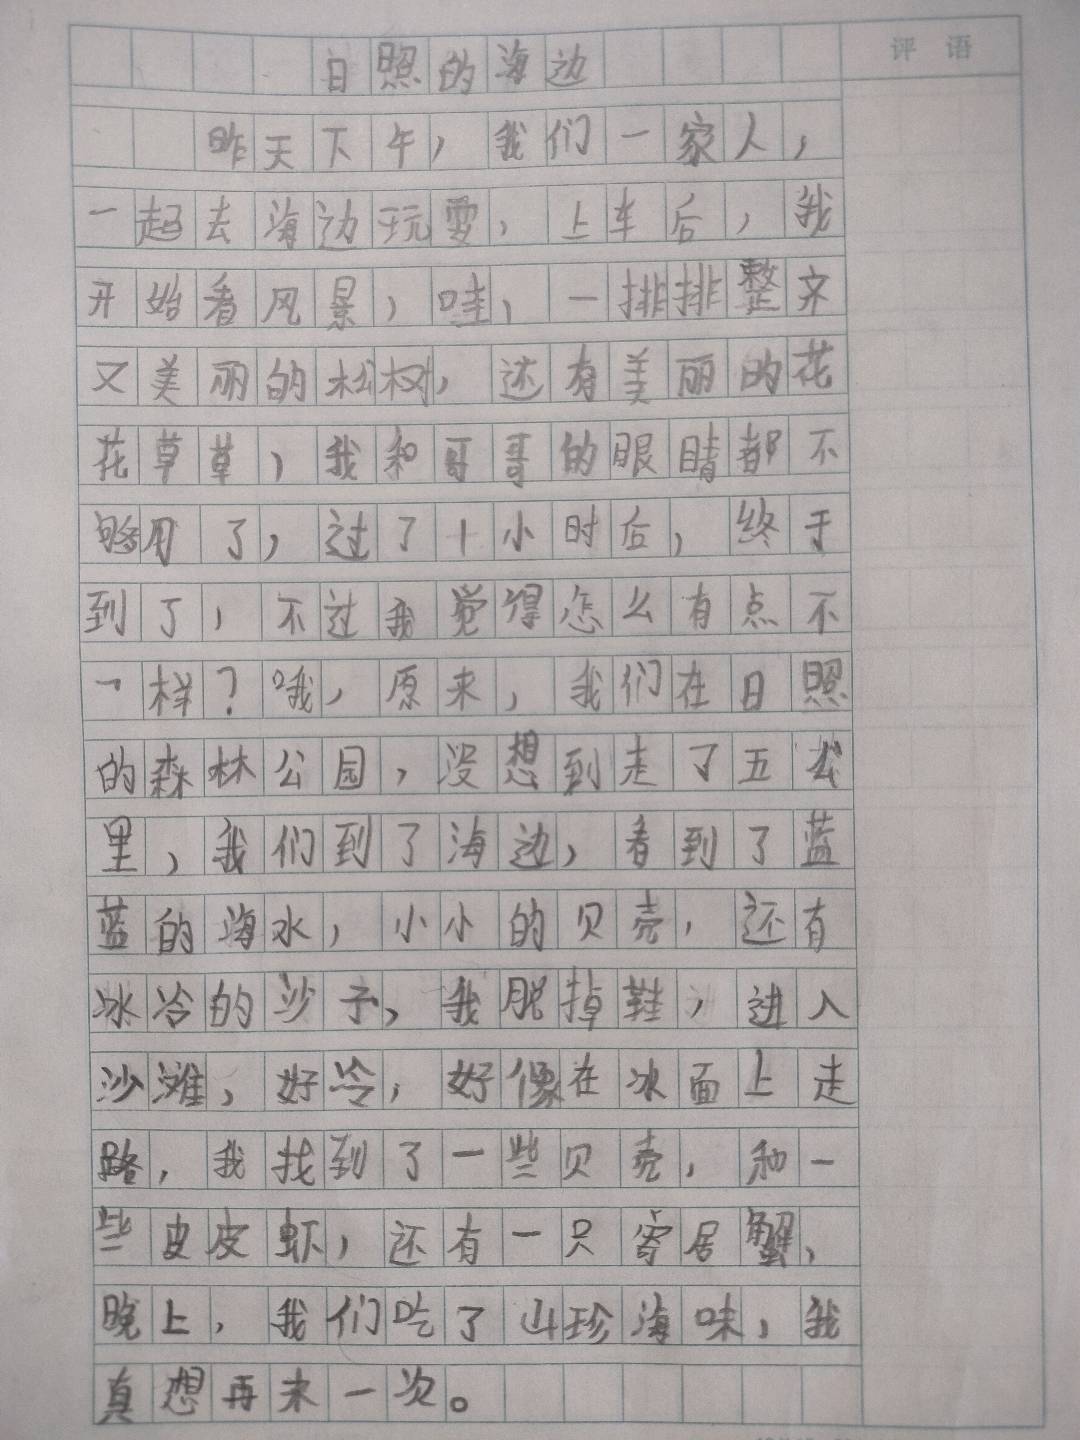 日照的海边
评语
昨天下午，我们一家人，
一起去海边玩耍，上车后，我
开始看风景，哇，一排排整齐
又美丽的松树，还有美丽的花
花草草，我和哥哥的眼睛都不
够用了，过了十小时后，终于
到了，不过我觉得怎么有点不
一样？哦，原来，我们在日照
的森林公园，没想到走了五公
里，我们到了海边，看到了蓝
蓝的海水，小小的贝壳，还有
冰冷的沙子，我脱掉鞋，进入
沙滩，好冷，好像在冰面上走
路，我找到了一些贝壳，和一
些皮皮虾，还有一只寄居蟹，
晚上，我们吃了山珍海味，我
真想再来一次。